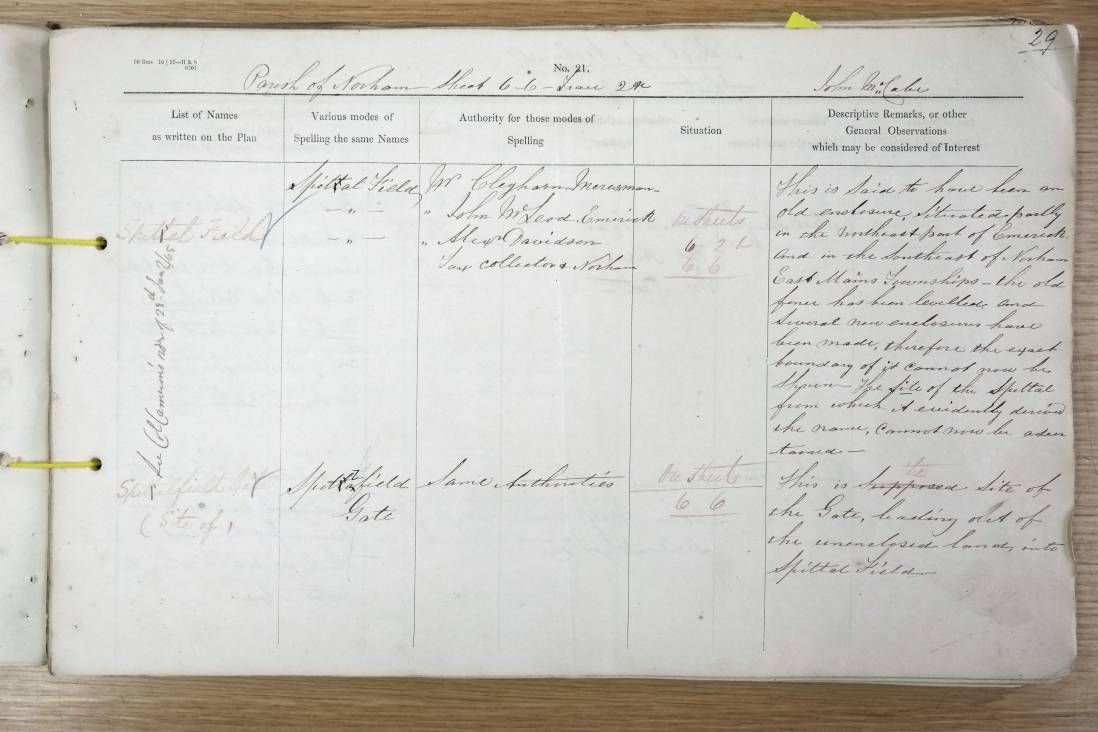 29
No. 21.
Parish of Norham Sheet 6 6 - Trace 2
John McCabe
List of Names
as written on the Plan
Various modes of
Spelling the same Names
Authority for those modes of
Spelling
Situation
Descriptive Remarks, or other
General Observations
which may be considered of Interest
Spittal Field
Spittal Field
— " —
— " —
Mr Cleghorn
" John McLeod
" Alexr Davidson
Tax collector Norham
on Sheets
6 . 2
6 . 6
This is Said to have been an
old enclosure, Situated partly
in the northeast part of
And in the Southeast of Norham
East Mains Townships - the old
fence has been levelled, and
Several new enclosures have
been made, therefore the exact
boundary of it cannot now be
Shewn - The Site of the Spittal
from which it evidently derived
the name, Cannot now be ascer
tained -
(Site of)
Spittalfield
Gate
Same Authorities
On Sheet
6 6
This is supposed Site of
the Gate, leading out of
the unenclosed land, into
Spittal Field